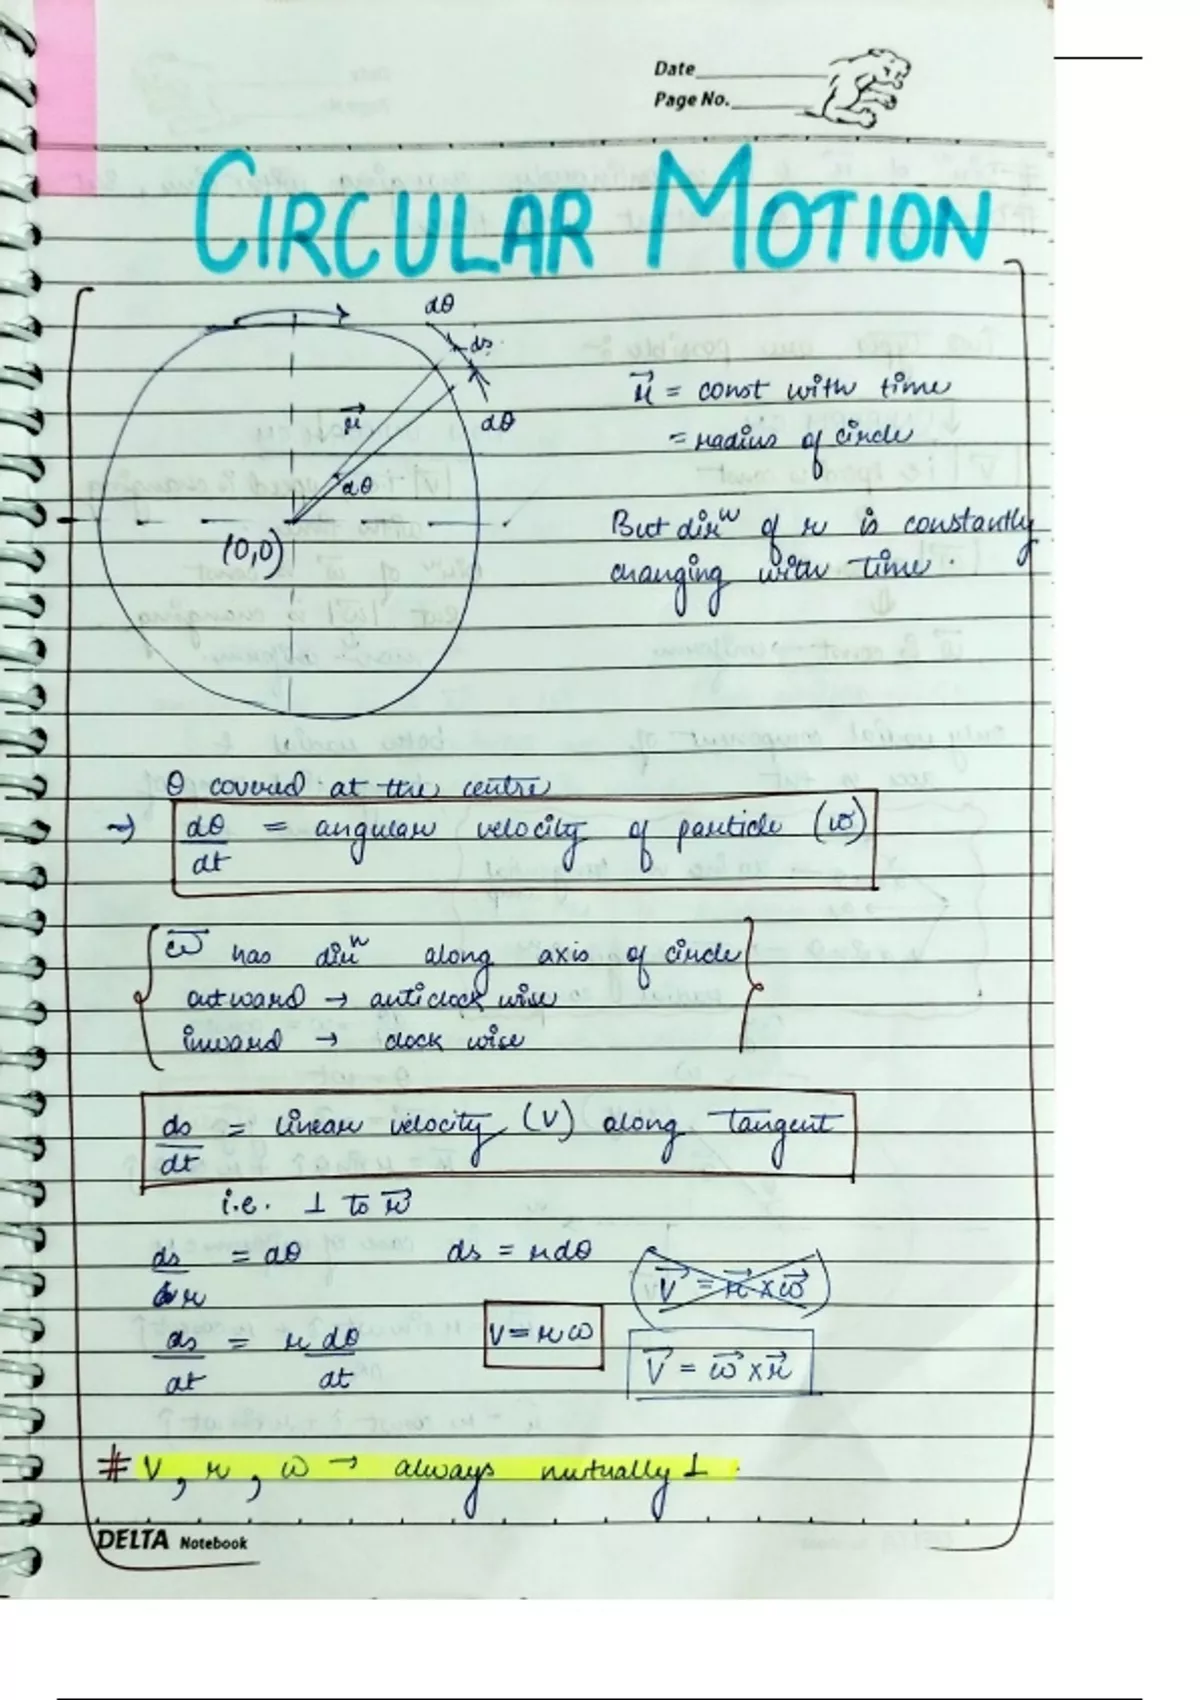 Date
Page No.
CIRCULAR MOTION
dθ
ds
r⃗
dθ
dθ
(0,0)
r⃗ = const with time
= radius of circle
But dirⁿ of r is constantly
changing with time.
θ covered at the centre
→ dθ/dt = angular velocity of particle (ω⃗)
ω⃗ has dirⁿ along axis of circle
outward → anticlock wise
inward → clock wise
ds/dt = linear velocity (V) along tangent
i.e. ⊥ to r⃗
ds/r = dθ ds = rdθ
V⃗ = r⃗ × ω⃗
ds/dt = r dθ/dt V = rω
V⃗ = ω⃗ × r⃗
# V, r, ω → always mutually ⊥
DELTA Notebook